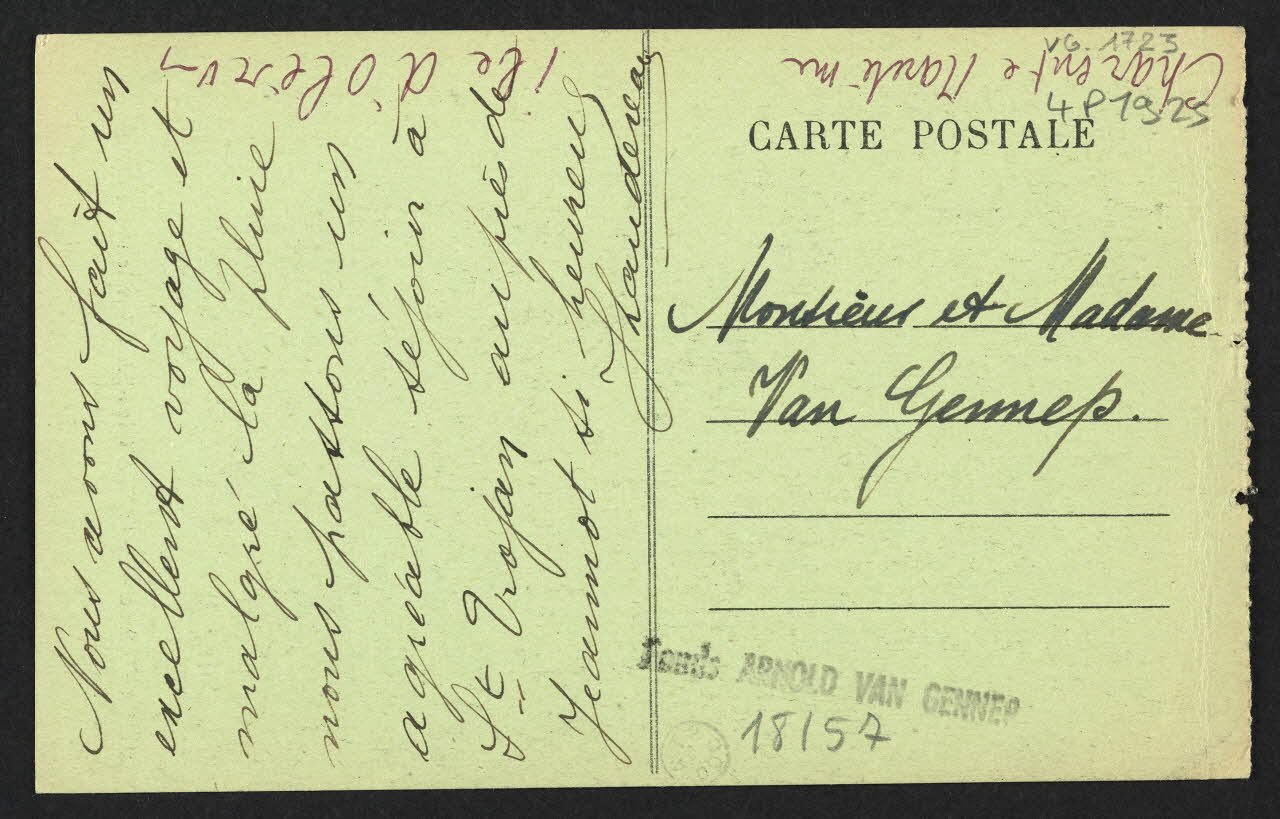 Nous avons fait un
excellent voyage et
malgré la pluie
nous passons un
agréable séjour à
St Trojan auprès de
Jeannot si heureux
Ile d'Oléron
Charente Maritime
VG. 1723
4 P 1925
CARTE POSTALE
Monsieur et Madame
Van Gennep.
Fonds ARNOLD VAN GENNEP
18157